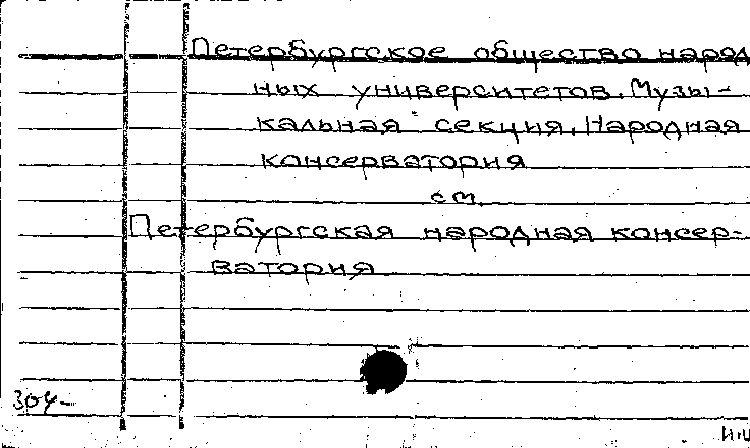 Петербургское общество народ
ных университетов. Музы-
кальная секция. Народная
консерватория
см.
Петербургская народная консер-
ватория
304-